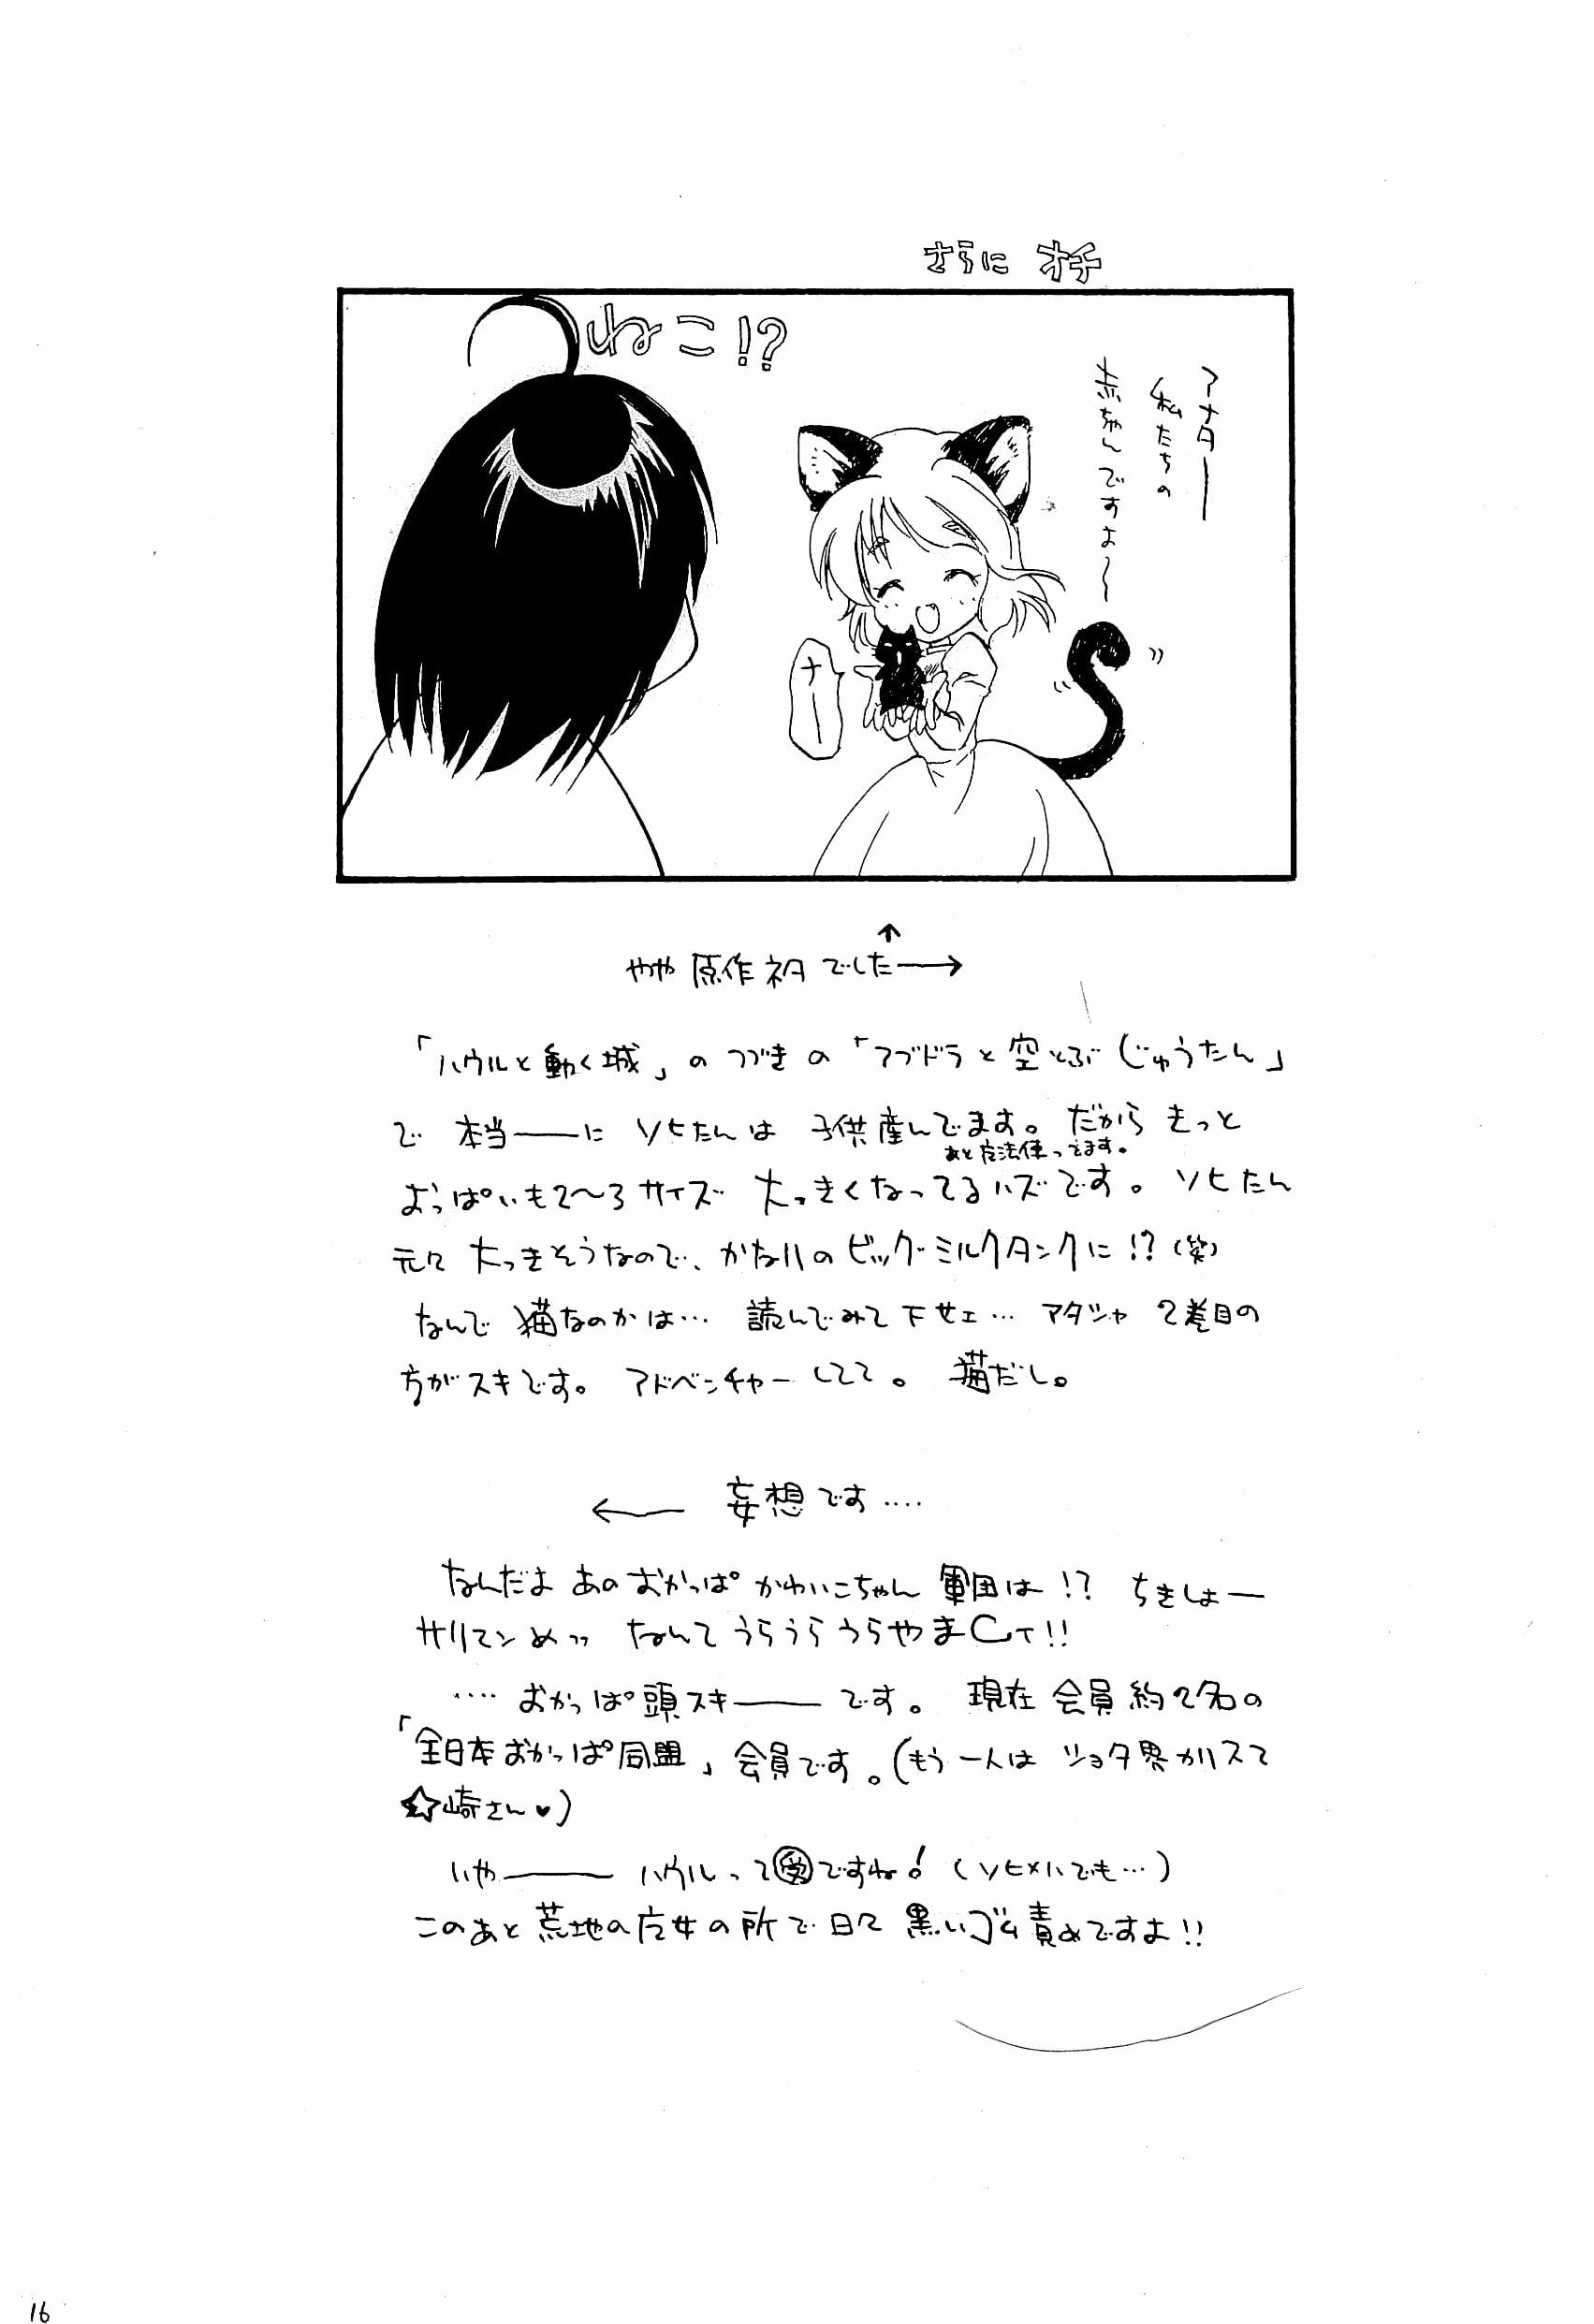 さらに オチ
ねこ!?
アナター
私たちの
赤ちゃんですよ～
ナー
↑
やや原作ネタでした→
「ハウルと動く城」のつづきの「アブドラと空とぶじゅうたん」
で 本当――に ソヒたんは 子供産んでます。だから きっと
あと魔法使ってます。
おっぱいも2～3サイズ 大っきくなってるハズです。ソヒたん
元々 大っきそうなので、かなりのビッグミルクタンクに!?(笑)
なんで 猫なのかは… 読んでみて下せェ… アタシャ 2巻目の
方がスキです。アドベンチャーしてて。 猫だし。
← 妄想です‥‥
なんだよ あのおかっぱ かわいこちゃん 軍団は!? ちきしょー
サリマンめッッ なんてうらうらうらやまCィ!!
‥‥おかっぱ頭スキ――です。 現在 会員約2名の
「全日本おかっぱ同盟」会員です。(もう一人は ショタ界カリスマ
☆崎さん♥)
いや―― ハウルって受ですね! (ソヒ×ハでも…)
このあと荒地の魔女の所で日々 黒いゴム責めですよ!!
16